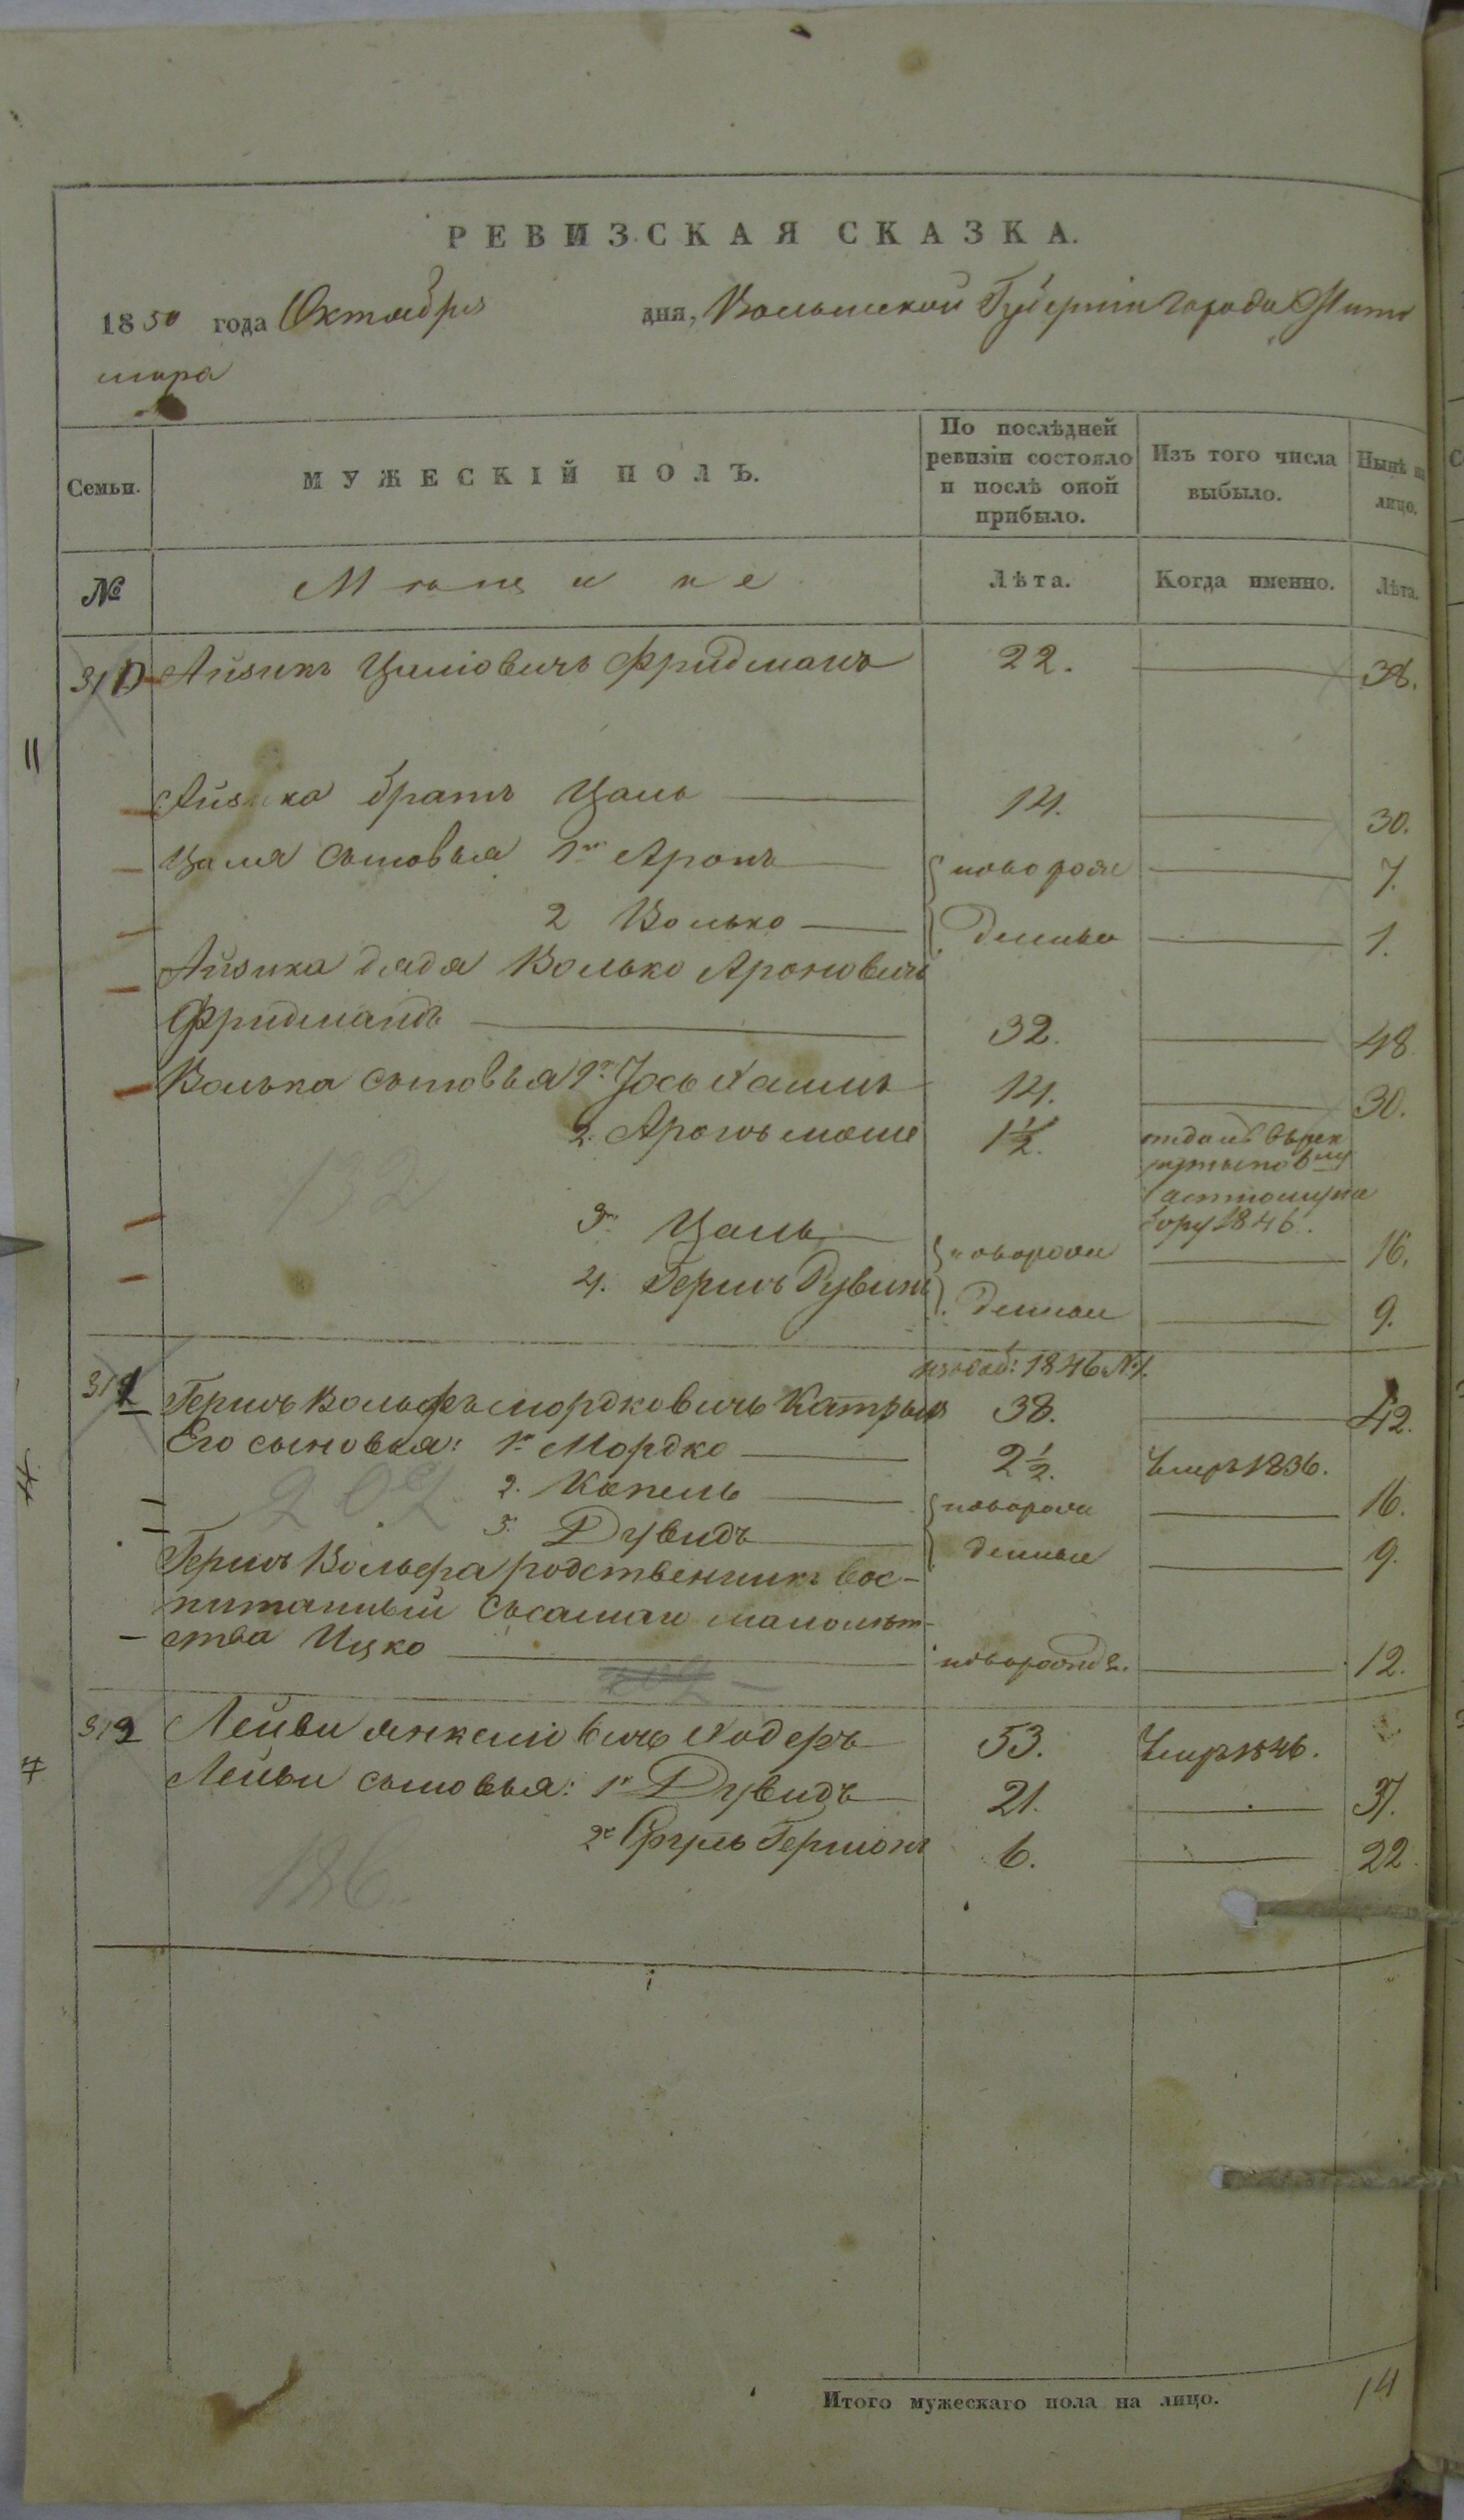 РЕВИЗСКАЯ СКАЗКА.
1850 года Октября дня, Волынской Губерніи города Жито
мира
Семьи. МУЖЕСКІЙ ПОЛЪ. По послѣдней ревизіи состояло и послѣ оной прибыло. Изъ того числа выбыло. Нынѣ на лицо.
№ Мѣщане Лѣта. Когда именно. Лѣта.
310 Айзикъ Цаліовичъ Фридманъ 22. 38.
Айзика братъ Цаль 14. 30.
Цаля сыновья 1й Аронъ новорож 7.
2 Волько денныя 1.
Айзика дядя Волько Ароновичъ
Фридманъ 32. 48
Волька сыновья 1й Іось Хаимъ 14. 30.
2. Аронъ Моше 1½. отданъ въ рек
рутыповму
частному на
бору 1846.
3й Цаль новорож 16.
4. Гершъ Рувинъ денныи 9.
1846 №1.
311 Гершъ Вольфъ Мордковичъ 38. 42.
Его сыновья: 1й Мордко 2½. Умеръ 1836.
2. Копель новорож 16.
3. Дувидъ денные 9.
Гершъ Вольфа родственникъ вос-
питанный съсамаго малолѣт-
ства Ицко новорожд. 12.
312 Лейви Янкеліовичъ Ходеръ 53. Умеръ 1846.
Лейви сыновья: 1й Дувидъ 21. 37.
2й Сруль Гершонъ 6. 22.
132
202
186.
Итого мужескаго пола на лицо. 14